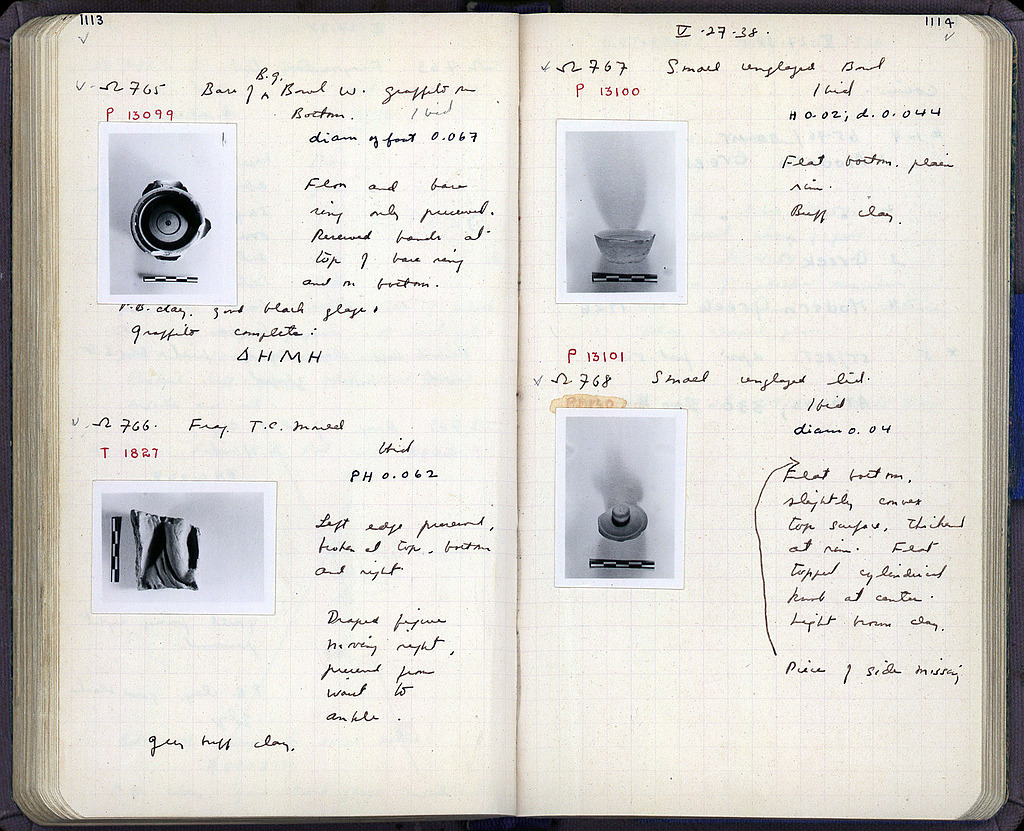 1113
B.g.
Ω 765 Base of ^ Bowl w. graffito on
P 13099 Bottom. Ibid
diam of foot 0.067
Floor and base
ring only preserved.
Reserved bands at
top of base ring
and on bottom.
P.B. clay. good black glaze.
Graffito complete:
ΔΗΜΗ
Ω 766. Frag. T.C. Mould
T 1827 Ibid
PH 0.062
Left edge preserved,
broken at top, bottom
and right.
Draped figure
moving right,
preserved from
waist to
ankle.
buff clay.
1114
V-27-38.
Ω 767 Small unglazed Bowl
P 13100 Ibid
H 0.02; d. 0.044
Flat bottom. plain
rim.
Buff clay.
P 13101
Ω 768 Small unglazed lid.
Ibid
diam 0.04
Flat bottom,
slightly convex
top surface, thickened
at rim. Flat
topped cylindrical
knob at center.
Light brown clay.
Piece of side missing